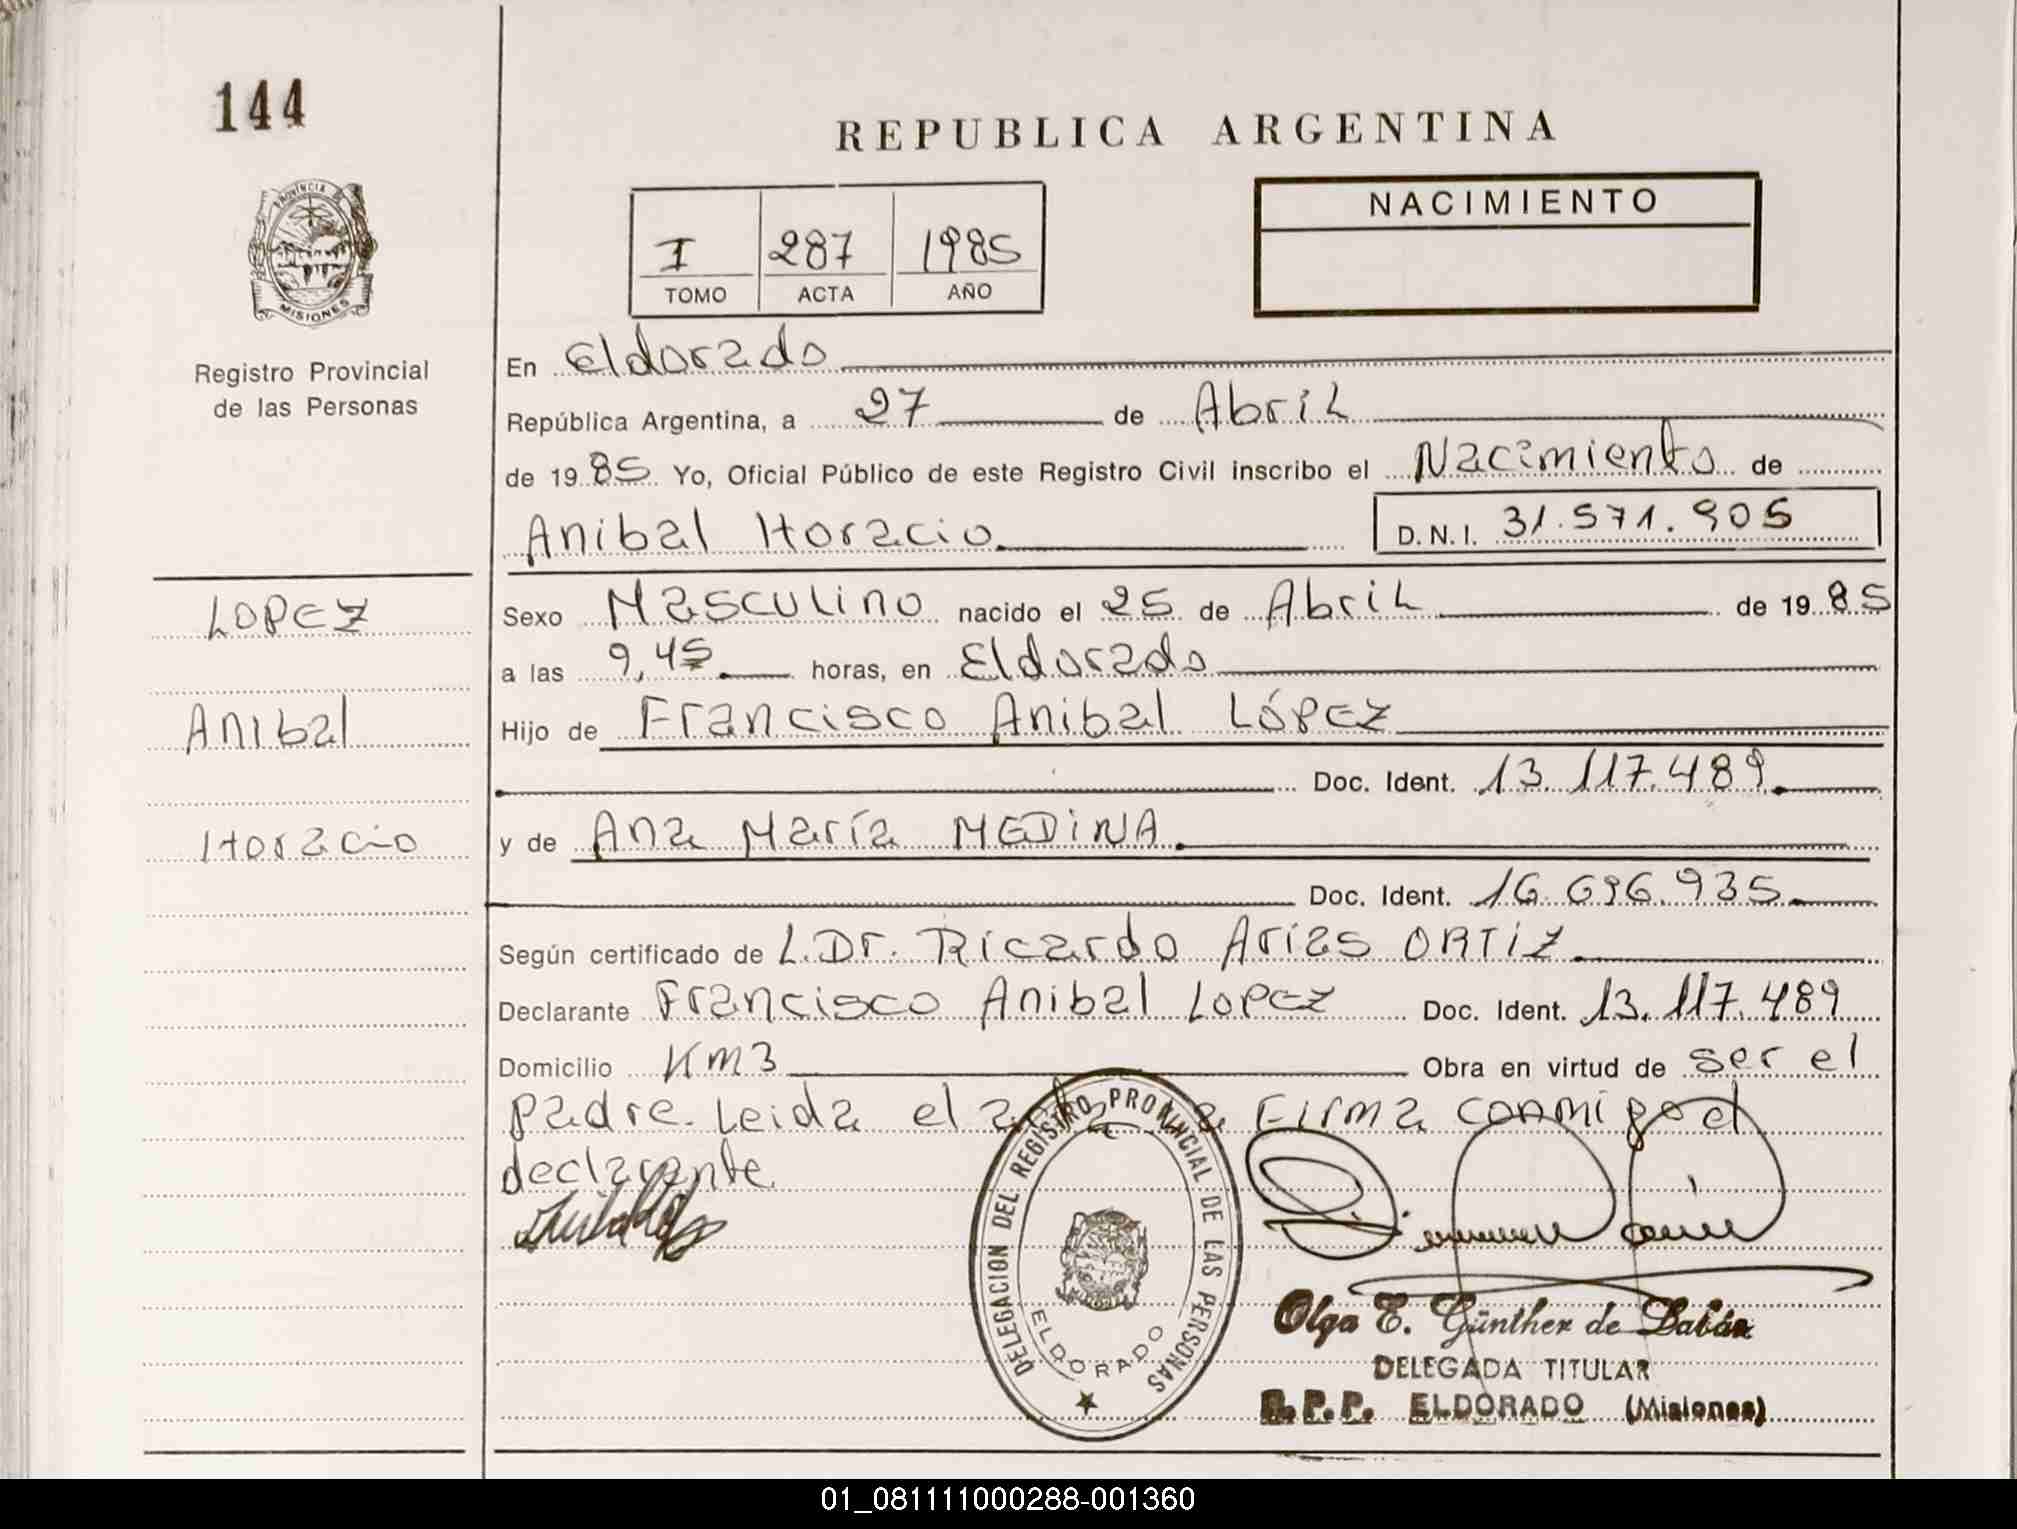 144
REPUBLICA ARGENTINA
PROVINCIA DE
MISIONES
I 287 1985
TOMO ACTA AÑO
NACIMIENTO
Registro Provincial
de las Personas
En Eldorado
República Argentina, a 27 de Abril
de 1985 Yo, Oficial Público de este Registro Civil inscribo el Nacimiento de
Anibal Horacio. D.N.I. 31.571.905
LOPEZ
Anibal
Horacio
Sexo Masculino nacido el 25 de Abril de 1985
a las 9,45 horas, en Eldorado
Hijo de Francisco Anibal LÓPEZ
Doc. Ident. 13.117.489
y de Ana María MEDINA
Doc. Ident. 16.696.935
Según certificado de L.Dr. Ricardo Arias ORTIZ
Declarante Francisco Anibal LOPEZ Doc. Ident. 13.117.489
Domicilio Km3 Obra en virtud de ser el
padre. Leida el acta la Firma conmigo el
declarante
DELEGACION DEL REGISTRO PROVINCIAL DE LAS PERSONAS
ELDORADO
Olga E. Günther de Labán
DELEGADA TITULAR
R.P.P. ELDORADO (Misiones)
01_081111000288-001360